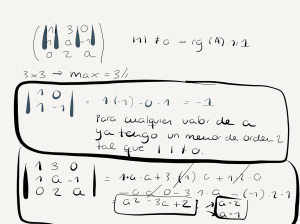 1 3 0
1 a -1
0 2 a
|1| ≠ 0 → rg (A) ≥ 1
3x3 → max = 3//
1 0
1 -1
= 1·(-1) - 0·1 = -1
Para cualquier valor de a
ya tengo un menor de orden 2
tal que | | ≠ 0.
1 3 0
1 a -1
0 2 a
= 1·a·a + 3·(-1)·0 + 1·2·0
- 0·a·0 - 3·1·a - (-1)·2·1
a² - 3a + 2
a=2
a=1